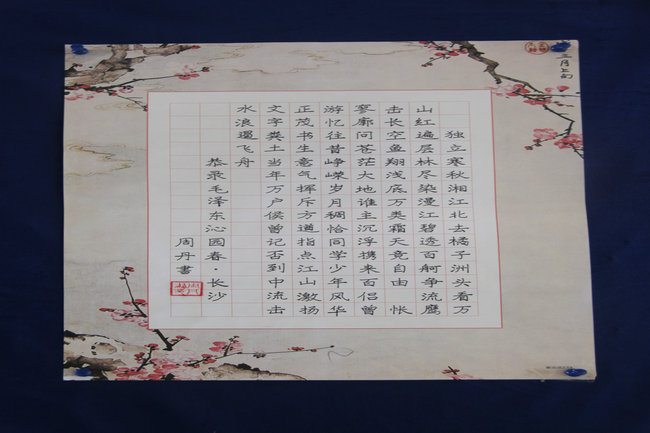 三月上旬
独立寒秋湘江北去橘子洲头看万
山红遍层林尽染漫江碧透百舸争流鹰
击长空鱼翔浅底万类霜天竞自由 怅
寥廓问苍茫大地谁主沉浮携来百侣曾
游忆往昔峥嵘岁月稠恰同学少年风华
正茂书生意气挥斥方遒指点江山激扬
文字粪土当年万户侯曾记否到中流击
水浪遏飞舟
恭录毛泽东沁园春·长沙
周丹書